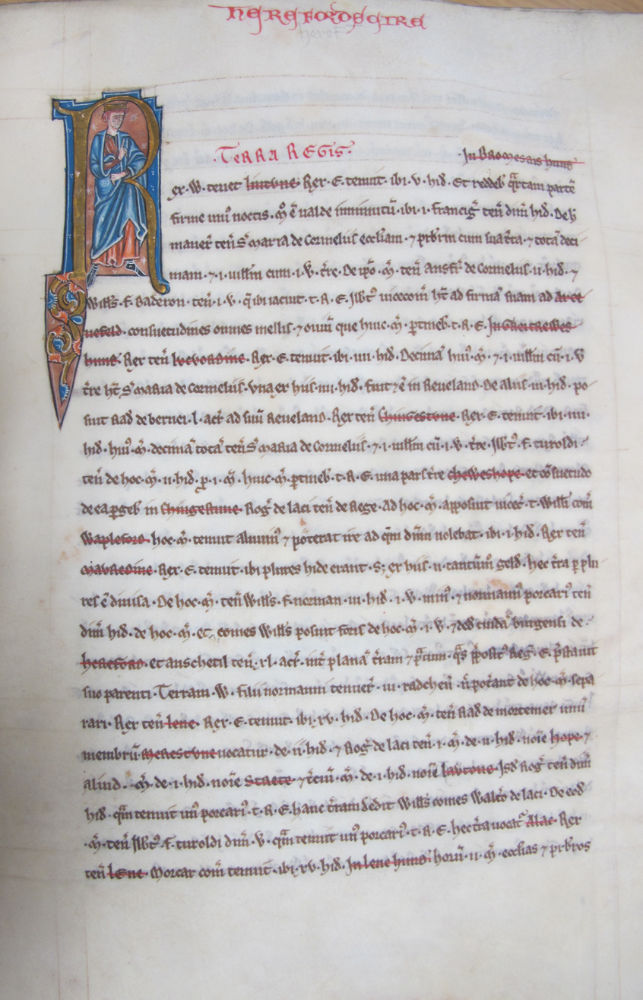 HEREFORDESCIRE
TERRA REGIS. In Bromesais hund
Rex .W. tenet lintune. Rex .E. tenuit. ibi .v. hid. Et reddeb q̃rtam partẽ
firme uniꝰ noctis. m̊ ẽ ualde inminutũ. ibi .i. francig̃ teñ dim̃ hid. De h̊
maneř teñ S̃ maria de cormelijs eccliam. ⁊ pƀrm cum sua t̃ra. ⁊ tota deci
mam. ⁊ .i. uillm̃ cum .i. v. t̃re. De ip̃o .m̃. teñ ansfř de cormelijs .ii. hid. ⁊
Willɫs .f. baderon. teñ .i. v. q̃ ibi iacuit .t.R.E. Ilƀtꝰ uicecom̃ ht̃ ad firmã suam ad
consuetudines omnes mellis ⁊ ouium que huic .m̃. ptineƀ .t.R.E. In
hund. Rex teñ Rex .E. tenuit. ibi .iiii. hid. Decimã huiꝰ .m̃. ⁊ .i. uillm̃ cũ .i. v
t̃re ht̃ S̃ maria de cormelijs. vna ex his .iiii. hid. fuit ⁊ ẽ in Reueland. De aliis .iii. hid. po
suit Rad de bernei .l. acř ad suũ Reueland. Rex teñ chingestune. Rex .E. tenuit. ibi .iiii.
hid. huiꝰ .m̃. decimã totã teñ S̃ maria de cormelijs. ⁊ .i. uillm̃ cũ .i. v. t̃re. Ilƀtꝰ .f. turoldi
teñ de hoc .m̃. .ii. hid. p̱ .i. m̃. huic .m̃. ptineƀ .t.R.E. una pars t̃re cheweshope. et cõsuetudo
de ea pgeƀ in chingestune. Rog̃ de laci teñ de Rege. Ad hoc .m̃. apposuit uicec̃ .t. Willi com̃
wapleford. hoc .m̃. tenuit aluuinꝰ ⁊ poterat ire ad q̃m dñm uolebat. ibi .i. hid. Rex teñ
mauuedine. Rex .E. tenuit. ibi plures hide erant. s; ex his .ii. tantum̃ geld. hec t̃ra p plu
res ẽ diuisa. De hoc .m̃. teñ Willɫs .f. norman .iii. hid. .i. v. minꝰ. ⁊ normannꝰ porcariꝰ teñ
dim̃ hid. de hoc .m̃. et comes Willɫs posuit foris de hoc .m̃. .i. v. ⁊ ded̃ cuidã burgensi de
hereford. et anschetil teñ .xl. acř. int̃ planã t̃ram ⁊ p̃tum. q̃s p̃positꝰ Reg̃ .E. p̃stauit
suo parenti. Terram .W. filii normanni tenueř .iii. radcheñ. ñ poteranť de hoc .m̃. sepa
rari. Rex teñ lene. Rex .E. tenuit. ibi .xv. hid. De hoc .m̃. teñ Rad de mortemer unũ
membrũ merestune uocatur. de .ii. hid. ⁊ Rog̃ de laci teñ .i. m̃. de .ii. hid. nõie hope. ⁊
aliud .m̃. de .i. hid. nõie stAete. ⁊ t̃ciũ .m̃. de .i. hid. nõie lautone. Isd̃ Rog̃ teñ dim̃
hid. q̃m tenuit unꝰ porcariꝰ .t.R.E. hanc t̃ram dedit Willɫs comes Walt̃o de laci. De eod̃
.m̃. teñ Ilƀtꝰ .f. turoldi dim̃ .v. q̃m tenuit unꝰ porcariꝰ .t.R.E. hec t̃ra uocat̃ Alac. Rex
teñ lene. Morcar com̃ tenuit. ibi .xv. hid. In lene hund. horũ .ii. m̃. ecclias ⁊ p̃rƀros